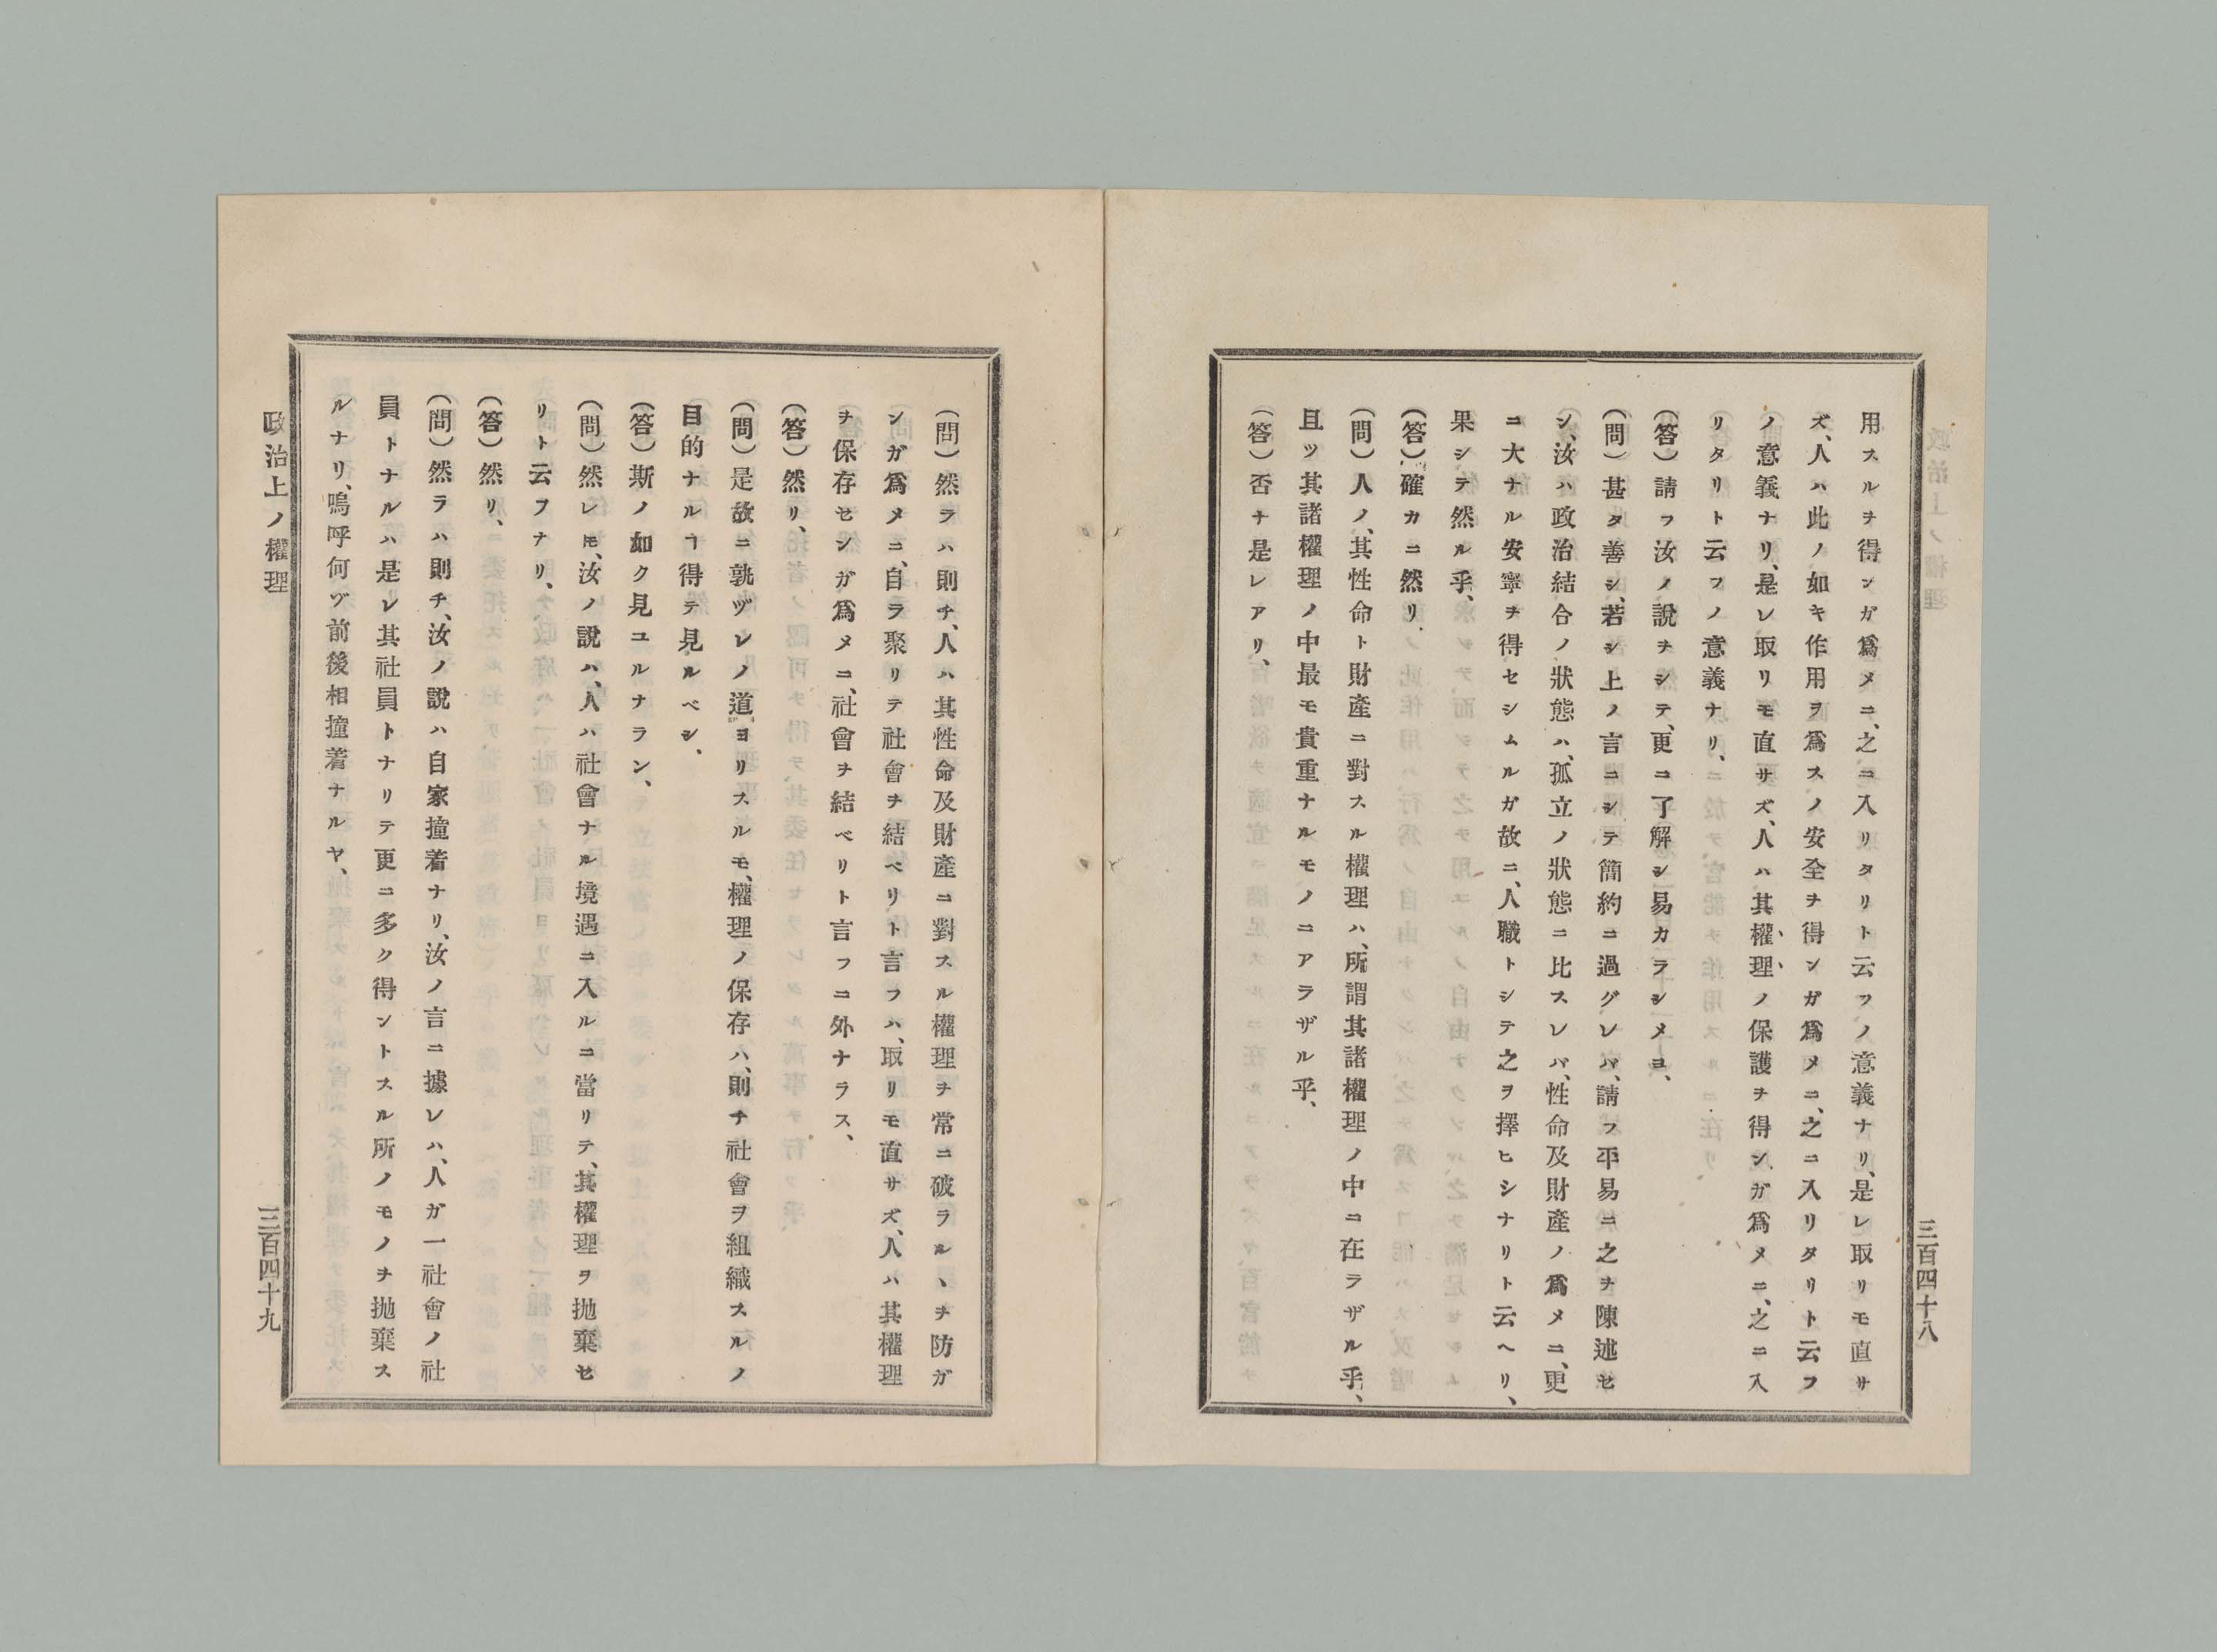 用スルヲ得ンガ爲メニ、之ニ入リタリト云フノ意義ナリ、是レ取リモ直サ
ズ、人ハ此ノ如キ作用ヲ爲スノ安全ヲ得ンガ爲メニ、之ニ入リタリト云フ
ノ意義ナリ、是レ取リモ直サズ、人ハ其權理ノ保護ヲ得ンガ爲メニ、之ニ入
リタリト云フノ意義ナリ、
(答)請フ汝ノ說ヲシテ、更ニ了解シ易カラシメヨ、
(問)甚タ善シ、若シ上ノ言ニシテ簡約ニ過グレバ、請フ平易ニ之ヲ陳述セ
ン、汝ハ政治結合ノ狀態ハ、孤立ノ狀態ニ比スレバ、性命及財產ノ爲メニ、更
ニ大ナル安寧ヲ得セシムルガ故ニ、人職トシテ之ヲ擇ヒシナリト云ヘリ、
果シテ然ル乎、
(答)確カニ然リ、
(問)人ノ、其性命ト財產ニ對スル權理ハ、所謂其諸權理ノ中ニ在ラザル乎、
且ツ其諸權理ノ中最モ貴重ナルモノニアラザル乎、
(答)否ナ是レアリ、
三百四十八
(問)然ラハ則チ、人ハ其性命及財產ニ對スル權理ヲ常ニ破ラルヽヲ防ガ
ンガ爲メニ、自ラ聚リテ社會ヲ結ベリト言フハ、取リモ直サズ、人ハ其權理
ヲ保存センガ爲メニ、社會ヲ結ベリト言フニ外ナラス、
(答)然リ、
(問)是故ニ孰ヅレノ道ヨリスルモ、權理ノ保存ハ、則チ社會ヲ組織スルノ
目的ナルヿ得テ見ルベシ、
(答)斯ノ如ク見ユルナラン、
(問)然レ𪜈、汝ノ說ハ、人ハ社會ナル境遇ニ入ルニ當リテ、其權理ヲ拋棄セ
リト云フナリ、
(答)然リ、
(問)然ラハ則チ、汝ノ說ハ自家撞着ナリ、汝ノ言ニ據レハ、人ガ一社會ノ社
員トナルハ是レ其社員トナリテ更ニ多ク得ントスル所ノモノヲ拋棄ス
ルナリ、嗚呼何ヅ前後相撞着ナルヤ、
政治上ノ權理
三百四十九